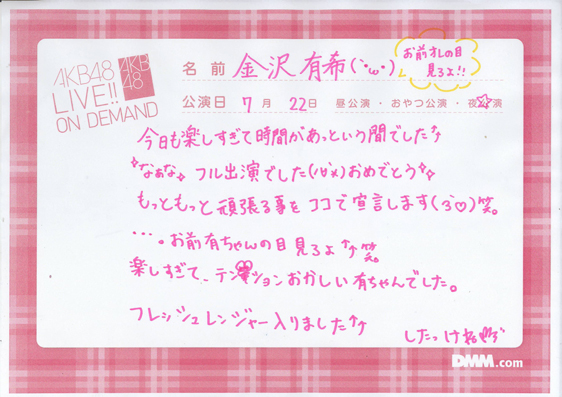 AKB48
LIVE!!
ON DEMAND
AKB
48
名前 金沢有希(´･ω･`)
お前オレの目
見ろよ!!
公演日 7月 22日 昼公演・おやつ公演・夜公演
今日も楽しすぎて時間があっという間でした↑
なぁな。フル出演でした(ﾉД`)おめでとう
もっともっと頑張る事をココで宣言します(ˊ♡)笑。
・・・。お前有ちゃんの目見ろよ↑↑笑。
楽しすぎて、テンションおかしい有ちゃんでした。
フレッシュレンジャー入りました↑↑
したっけね
DMM.com